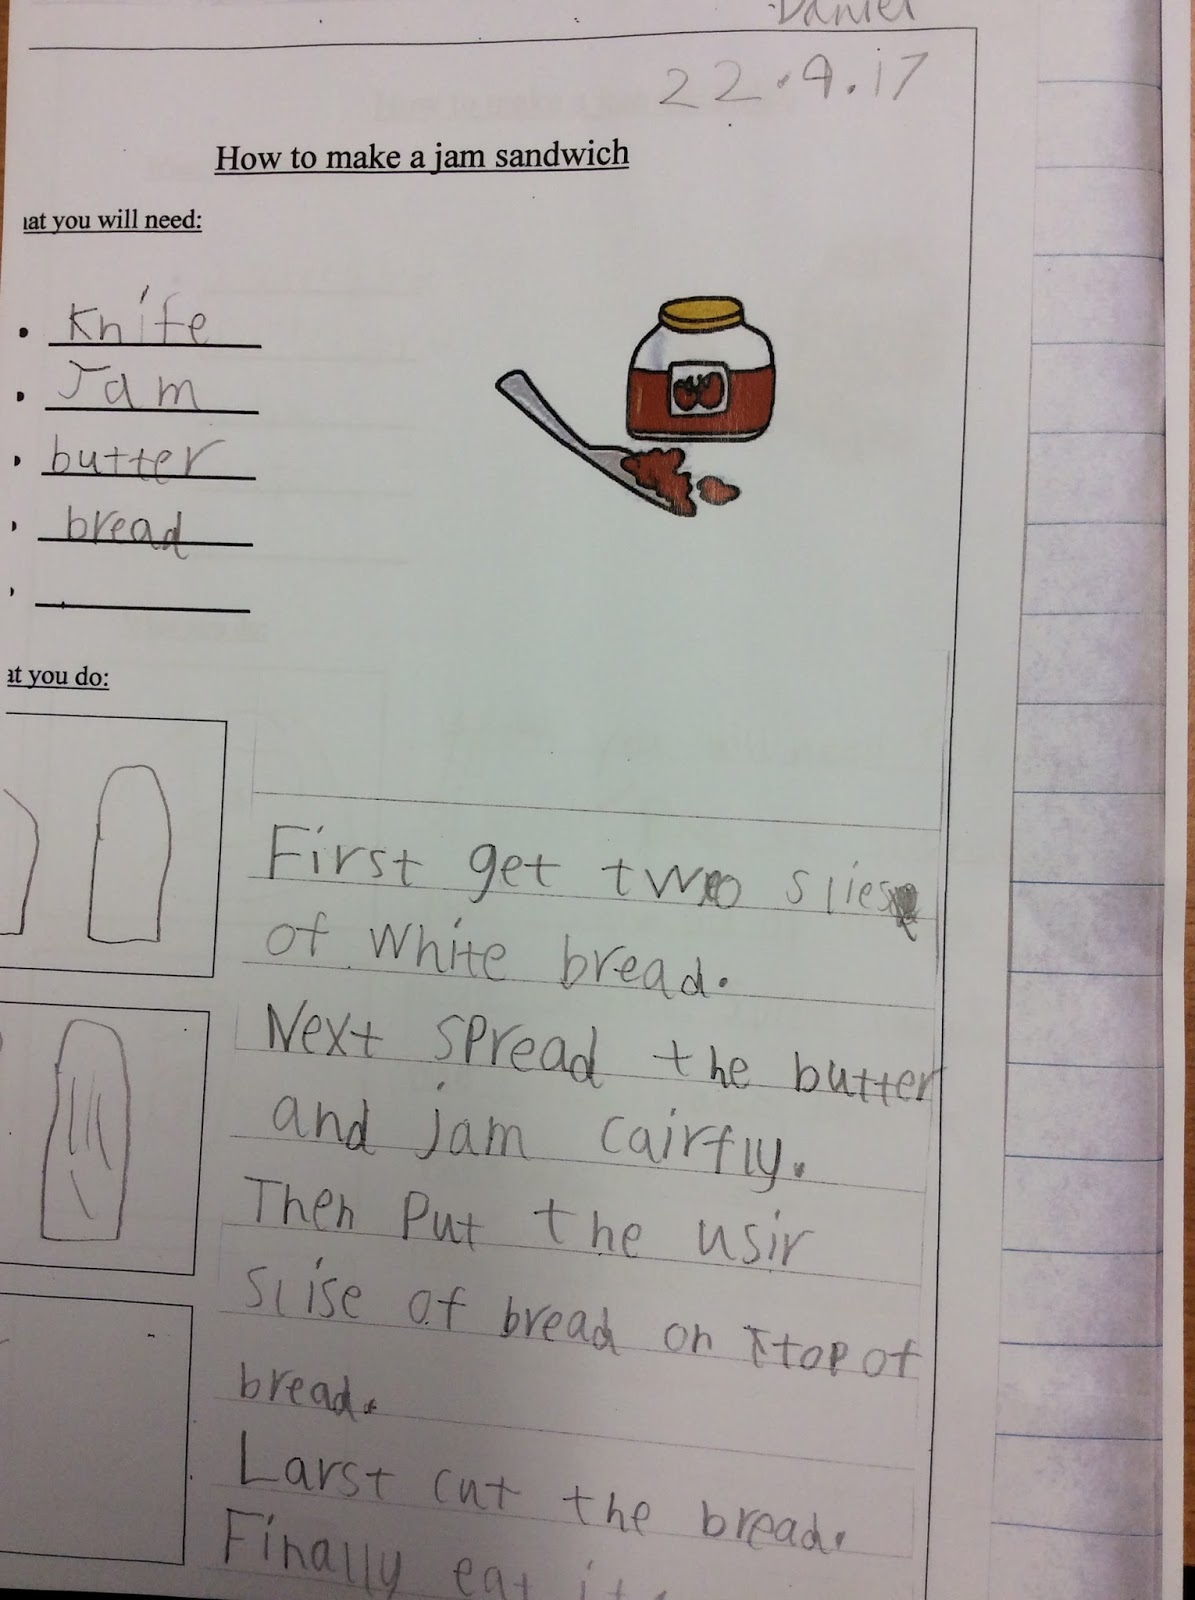 Daniel
22.9.17
How to make a jam sandwich
at you will need:
Knife
Jam
butter
bread
at you do:
First get two slies
of white bread.
Next spread the butter
and jam cairfly.
Then put the usir
slise of bread on top of
bread.
Larst cut the bread.
Finally eat it